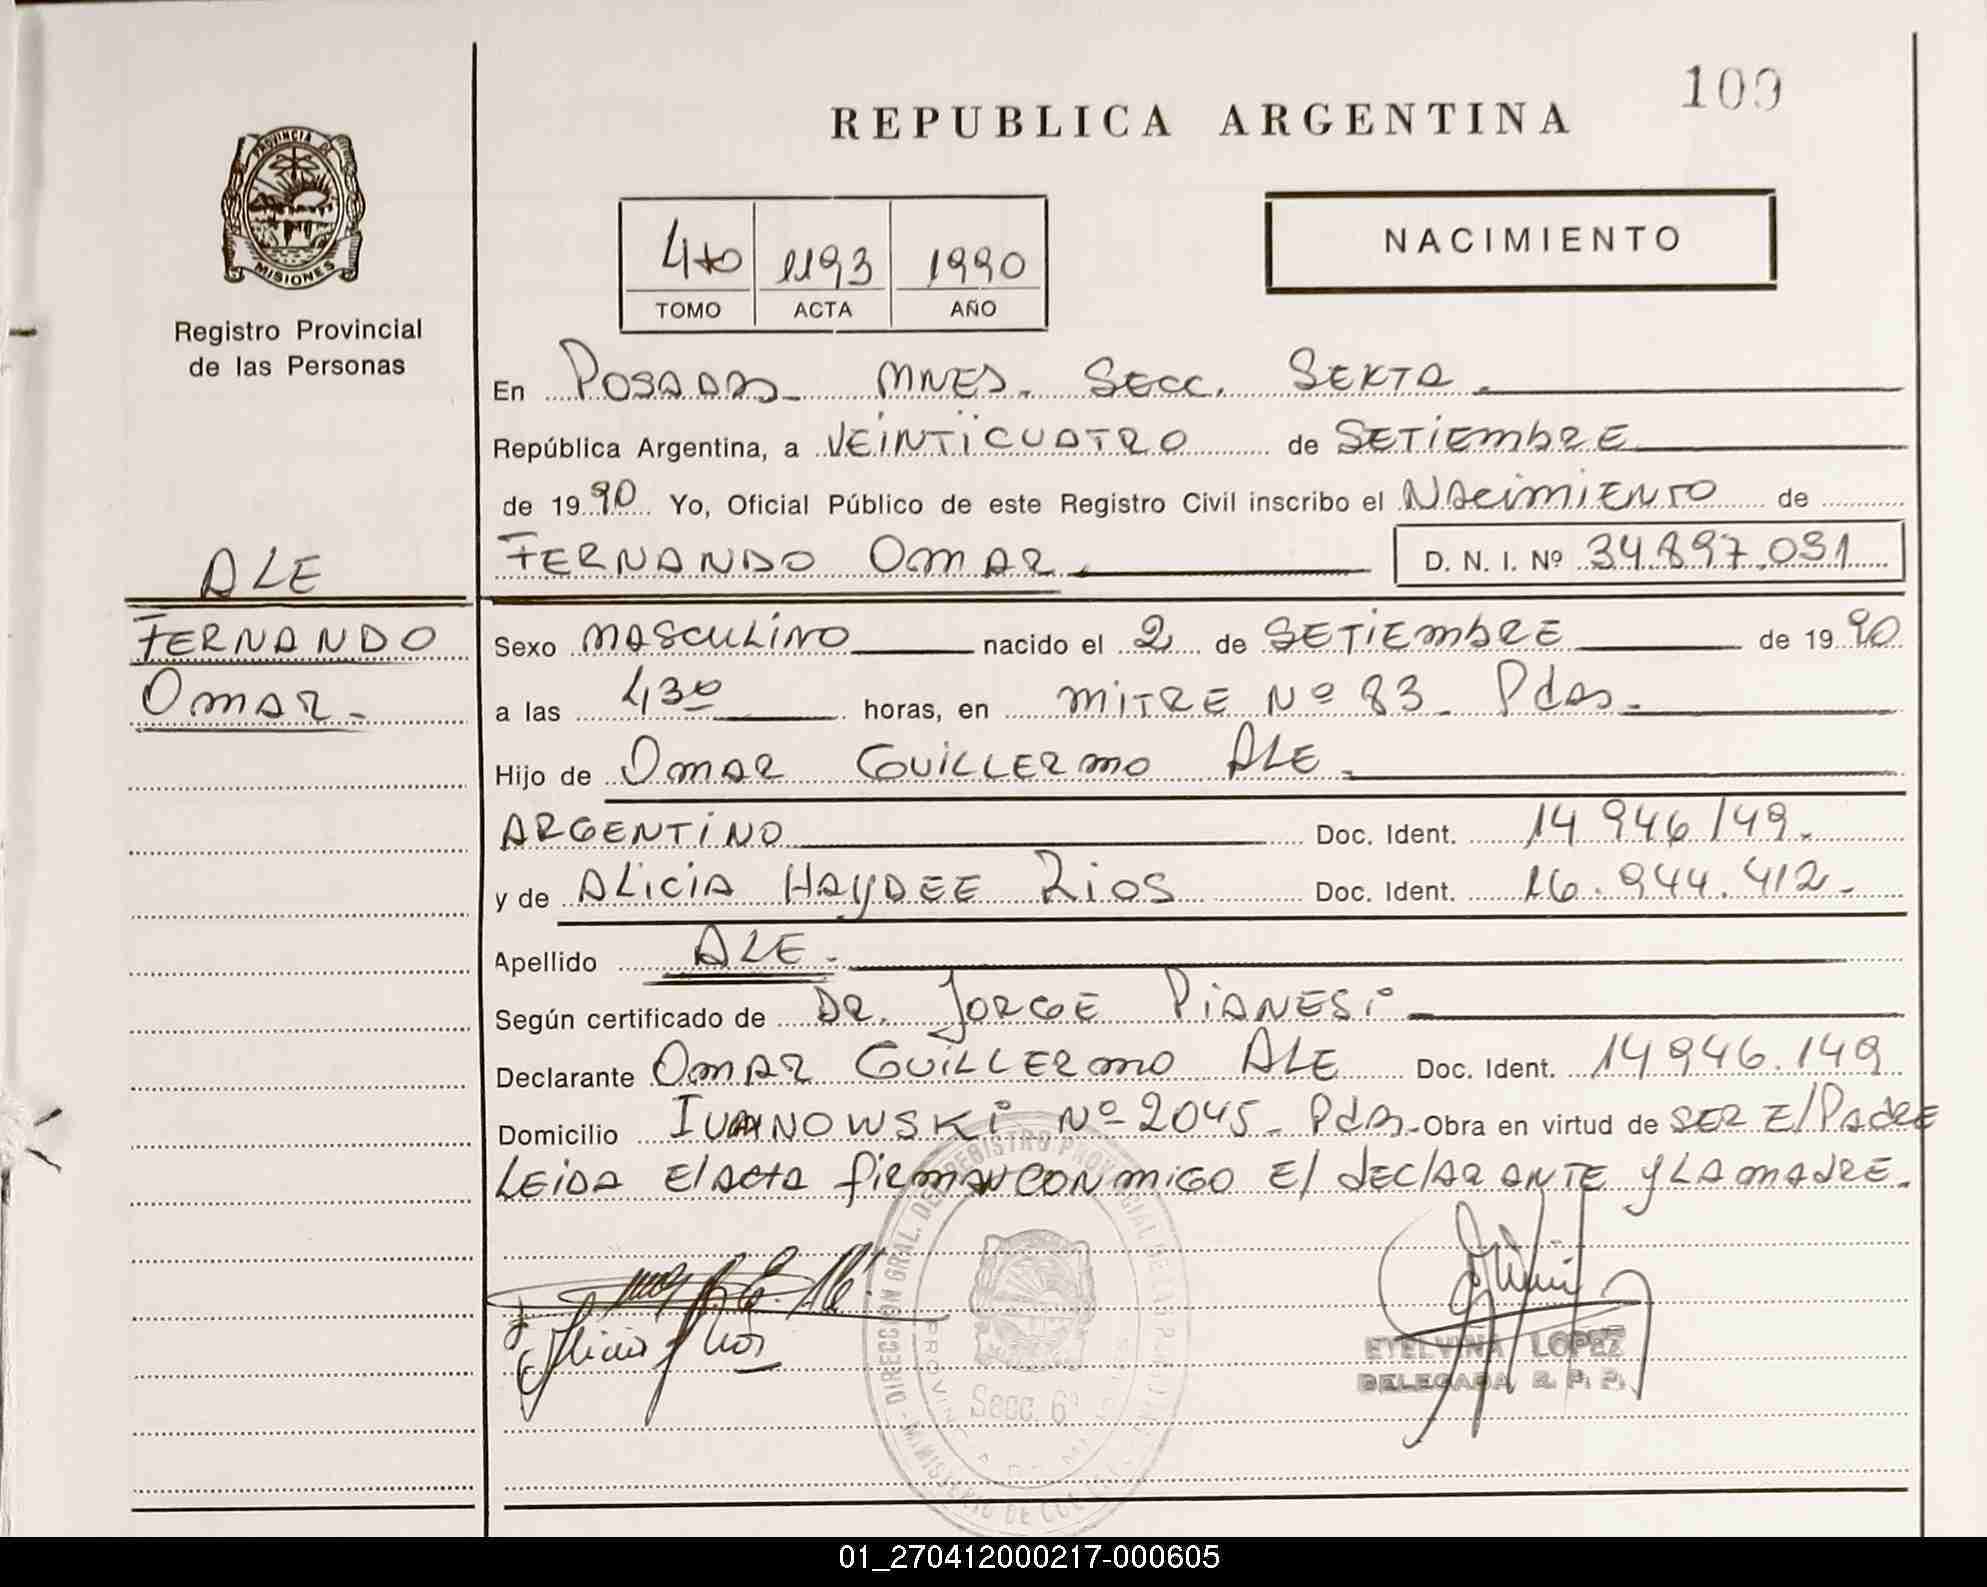 109
REPUBLICA ARGENTINA
PROVINCIA DE
MISIONES
Registro Provincial
de las Personas
4to 1193 1990
TOMO ACTA AÑO
NACIMIENTO
En POSADAS - MNES. SECC. SEXTA.
República Argentina, a VEINTICUATRO de SETIEMBRE
de 1990 Yo, Oficial Público de este Registro Civil inscribo el NACIMIENTO de
FERNANDO OMAR. D. N. I. Nº 34.897.031
ALE
FERNANDO
OMAR.-
Sexo MASCULINO nacido el 2 de SETIEMBRE de 1990
a las 430 horas, en MITRE Nº 83 - Pdas.
Hijo de OMAR GUILLERMO ALE.
ARGENTINO Doc. Ident. 14 946149.
y de ALICIA HAYDEE RIOS Doc. Ident. 16.944.412.-
Apellido ALE.
Según certificado de DR. JORGE PIANESI
Declarante OMAR GUILLERMO ALE Doc. Ident. 14946.149
Domicilio IVANOWSKI Nº 2045 - Pdas. Obra en virtud de SER El PADRE
LEIDA El ACTA firman CONMIGO El dEClARANTE y LA MADRE.
EYELVINA LOPEZ
DELEGADA R. P. P.
DIRECCION GRAL. DEL REGISTRO PROVINCIAL DE LAS P
Secc. 6ª
MINISTERIO DE
01_270412000217-000605